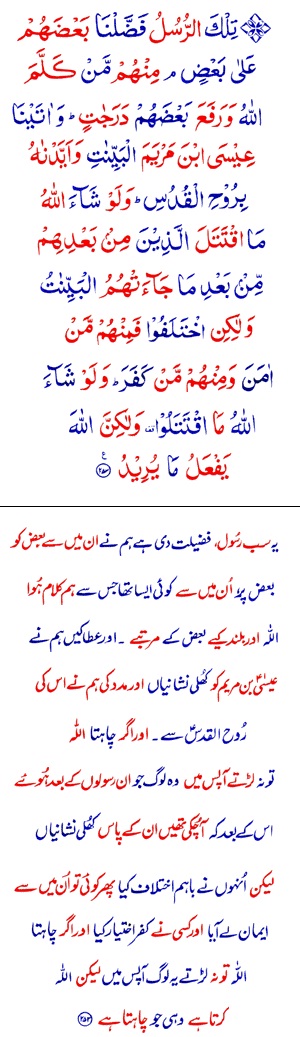 تِلْكَ الرُّسُلُ فَضَّلْنَا بَعْضَهُمْ
عَلٰى بَعْضٍ ۘ مِنْهُمْ مَّنْ كَلَّمَ
اللّٰهُ وَرَفَعَ بَعْضَهُمْ دَرَجٰتٍ ؕ وَاٰتَيْنَا
عِيْسَى ابْنَ مَرْيَمَ الْبَيِّنٰتِ وَاَيَّدْنٰهُ
بِرُوْحِ الْقُدُسِ ؕ وَلَوْ شَآءَ اللّٰهُ
مَا اقْتَتَلَ الَّذِيْنَ مِنْۢ بَعْدِهِمْ
مِّنْۢ بَعْدِ مَا جَآءَتْهُمُ الْبَيِّنٰتُ
وَلٰكِنِ اخْتَلَفُوْا فَمِنْهُمْ مَّنْ
اٰمَنَ وَمِنْهُمْ مَّنْ كَفَرَ ؕ وَلَوْ شَآءَ
اللّٰهُ مَا اقْتَتَلُوْا وَلٰكِنَّ اللّٰهَ
يَفْعَلُ مَا يُرِيْدُ ﴿۲۵۳﴾
یہ سب رسُول، فضیلت دی ہے ہم نے ان میں سے بعض کو
بعض پر، اُن میں سے کوئی ایسا تھا جس سے ہم کلام ہُوا
اللہ اور بلند کیے بعض کے مرتبے۔ اور عطا کیں ہم نے
عیسٰیؑ بن مریم کو کھُلی نشانیاں اور مدد کی ہم نے اس کی
رُوح القدس سے۔ اور اگر چاہتا اللہ
تو نہ لڑتے آپس میں وہ لوگ جو ان رسولوں کے بعد ہُوئے
اس کے بعد کہ آ چُکی تھیں ان کے پاس کھُلی نشانیاں
لیکن اُنہوں نے باہم اختلاف کیا پھر کوئی تو اُن میں سے
ایمان لے آیا اور کسی نے کفر اختیار کیا اور اگر چاہتا
اللہ تو نہ لڑتے یہ لوگ آپس میں لیکن اللہ
کرتا ہے وہی جو چاہتا ہے ﴿۲۵۳﴾